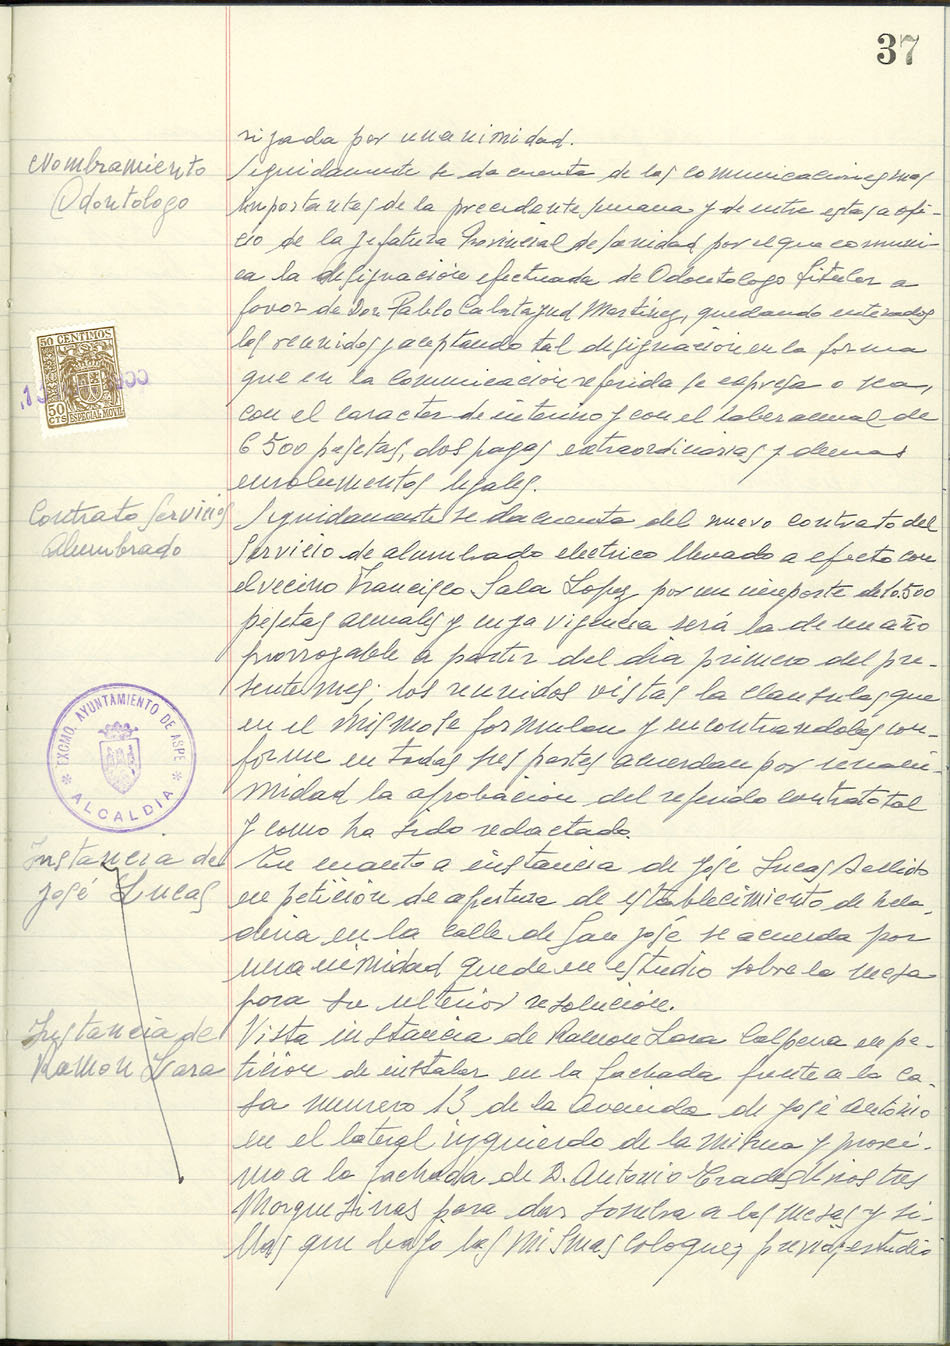 37
rizada por unanimidad.
Nombramiento
Odontologo
Seguidamente se da cuenta de las comunicaciones mas
importantes de la precedente semana y de entre estas a ofi-
cio de la Jefatura Provincial de Sanidad por el que comuni-
ca la designación efectuada de Odontologo titular a
favor de Don Pablo Calatayud Martinez, quedando enterados
los reunidos y aceptando tal designación en la forma
que en la comunicación referida se expresa o sea,
con el caracter de interino y con el haber anual de
6500 pesetas, dos pagas extraordinarias y demas
emolumentos legales.
50 CENTIMOS
50
CTS
ESPECIAL MOVIL
Contrato Servicio
Alumbrado
Seguidamente se da cuenta del nuevo contrato del
Servicio de alumbrado electrico llevado a efecto con
el vecino Francisco Sala Lopez por un importe de 10.500
pesetas anuales y cuya vigencia será la de un año
prorrogable a partir del dia primero del pre-
sente mes; los reunidos vistas la clausulas que
en el mismo se formulan y encontrandolas con-
forme en todas sus partes acuerdan por unani-
midad la aprobacion del referido contrato tal
y como ha sido redactado.
EXCMO. AYUNTAMIENTO DE ASPE
* ALCALDIA *
Instancia de
José Lucas
En cuanto a instancia de José Lucas
en petición de apertura de establecimiento de hela-
deria en la calle de San José se acuerda por
unanimidad quede en estudio sobre la mesa
para su ulterior resolución.
Instancia de
Ramon Lara
Vista instancia de Ramon Lara Calpena en pe-
tición de instalar en la fachada frente a la ca-
sa numero 13 de la Avenida de José Antonio
en el lateral izquierdo de la misma y proxi-
mo a la fachada de D. Antonio unos tres
Marquesinas para dar sombra a las mesas y si-
llas que bajo las mismas coloque, previo estudio